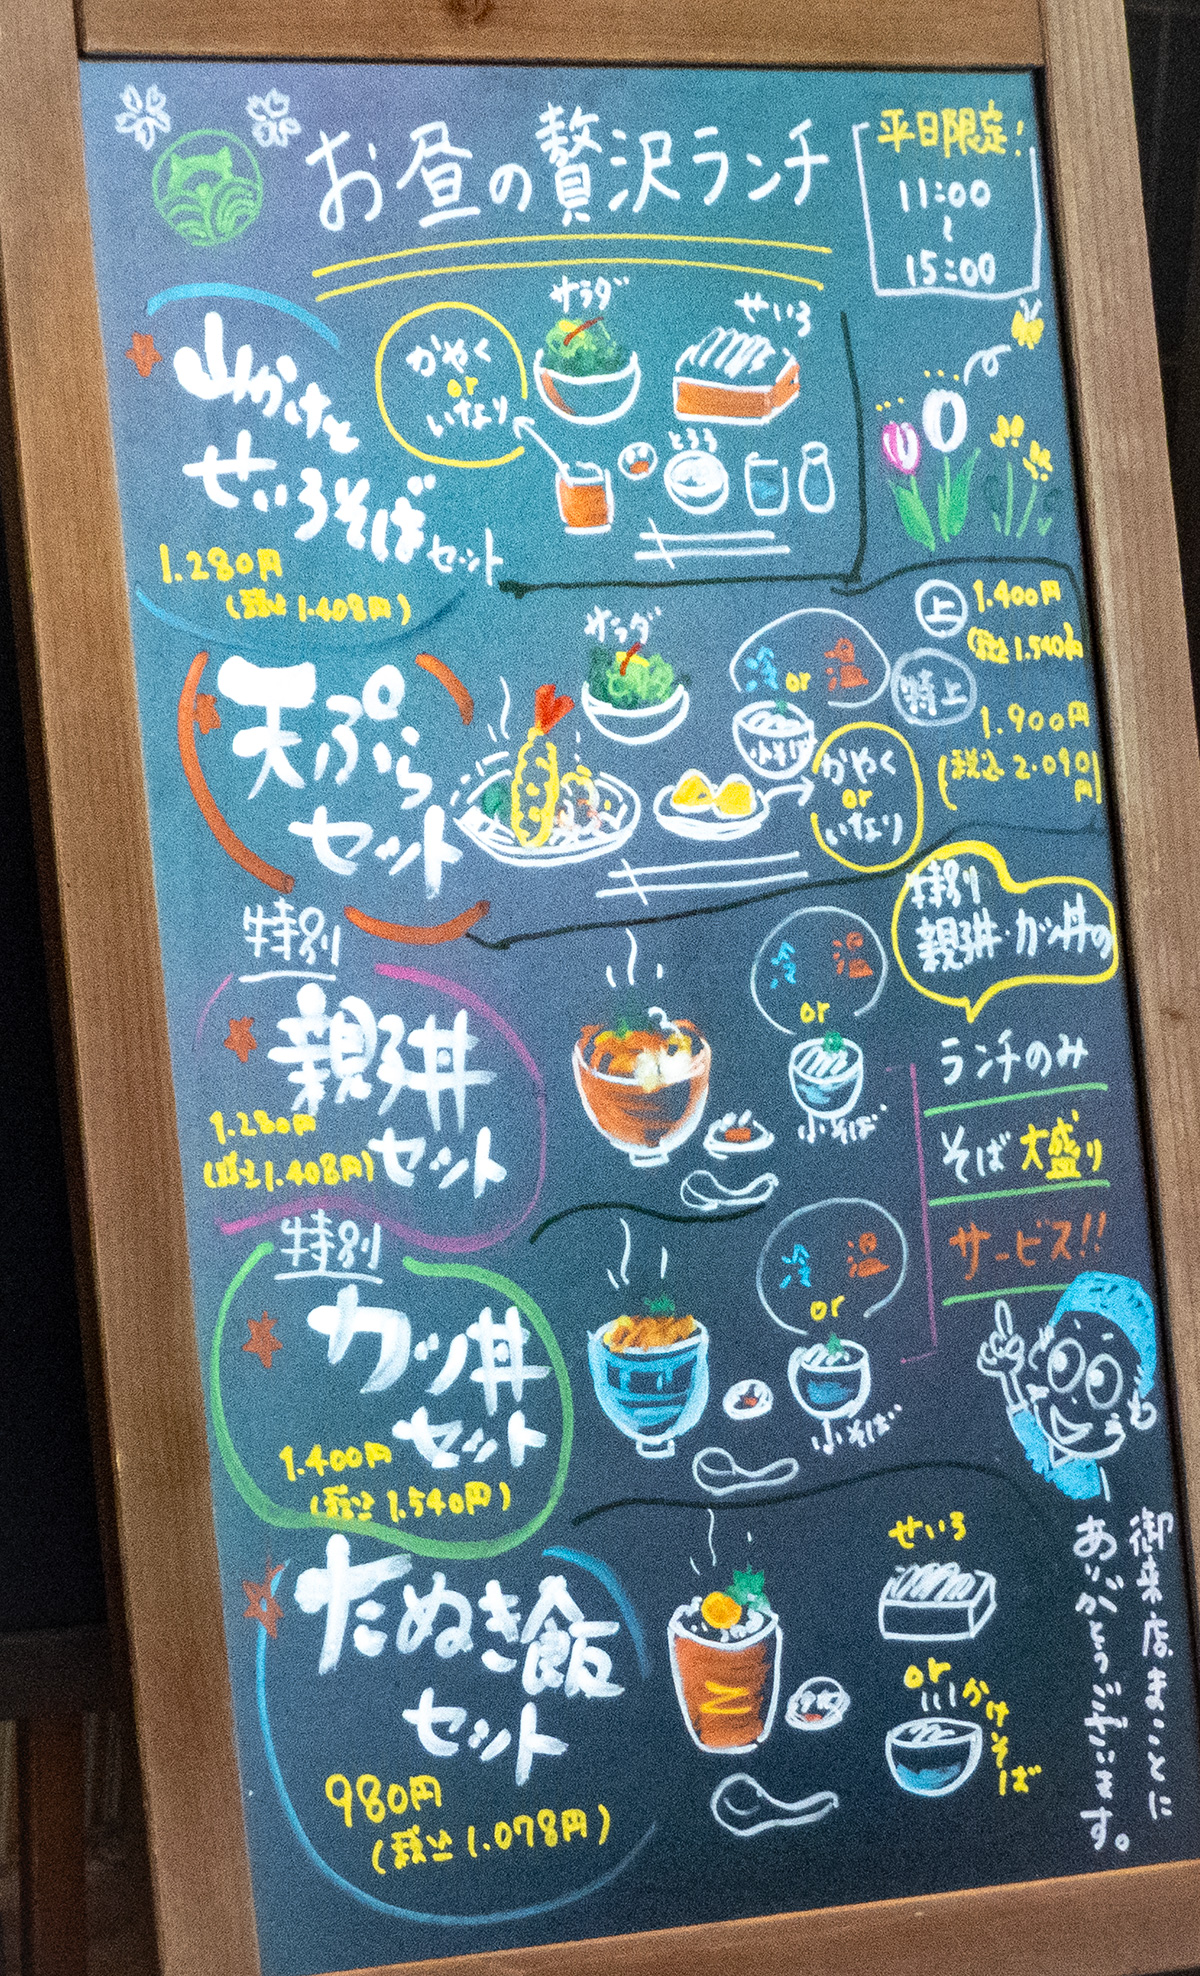 お昼の贅沢ランチ
平日限定!
11:00
~
15:00
山かけと
せいろそば
セット
1.280円
(税込 1.408円)
かやく
or
いなり
サラダ
せいろ
とろろ
天ぷら
セット
サラダ
冷 or 温
小そば
かやく
or
いなり
上 1.400円
(税込 1.540円)
特上
1.900円
(税込 2.090円)
特別
親子丼
セット
1.280円
(税込 1.408円)
冷 温
or
小そば
特別
親子丼・カツ丼の
ランチのみ
そば 大盛り
サービス!!
特別
カツ丼
セット
1.400円
(税込 1.540円)
冷 温
or
小そば
たぬき飯
セット
980円
(税込 1.078円)
せいろ
or
かけそば
御来店まことに
ありがとうございます。